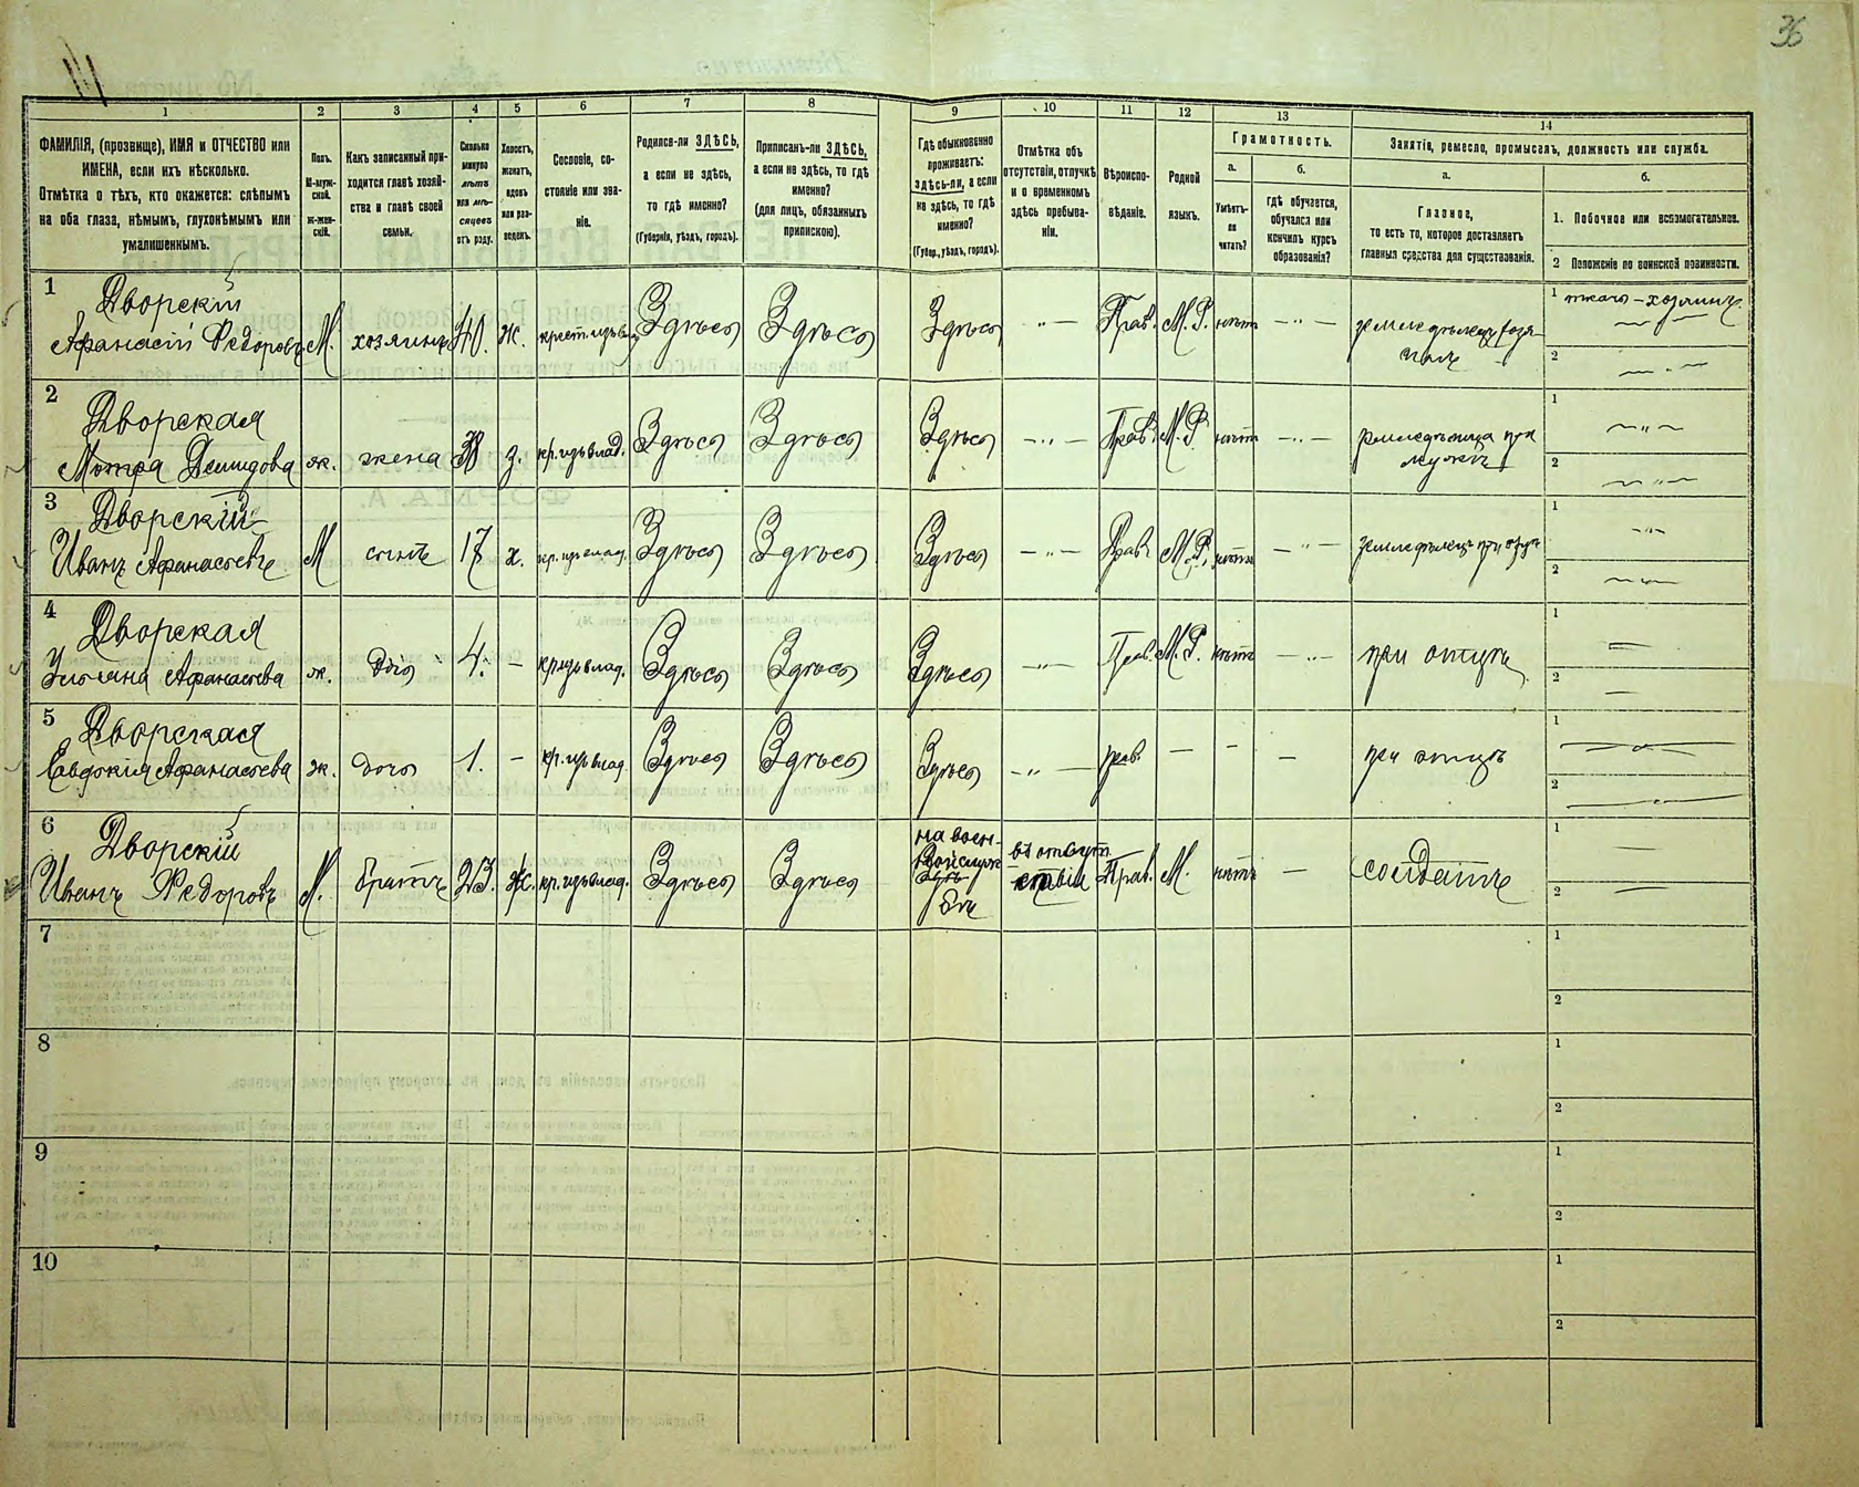 36
1
2
3
4
5
6
7
8
9
10
11
12
13
14
ФАМИЛІЯ, (прозвище), ИМЯ и ОТЧЕСТВО или
ИМЕНА, если ихъ нѣсколько.
Отмѣтка о тѣхъ, кто окажется: слѣпымъ
на оба глаза, нѣмымъ, глухонѣмымъ или
умалишеннымъ.
Полъ.
М-муж-
ской.
ж-жен-
скій.
Какъ записанный при-
ходится главѣ хозяй-
ства и главѣ своей
семьи.
Сколько
минуло
лѣтъ
или мѣ-
сяцевъ
отъ роду.
Холостъ,
женатъ,
вдовъ
или раз-
веденъ.
Сословіе, со-
стояніе или зва-
ніе.
Родился-ли ЗДѢСЬ,
а если не здѣсь,
то гдѣ именно?
(Губернія, уѣздъ, городъ).
Приписанъ-ли ЗДѢСЬ,
а если не здѣсь, то гдѣ
именно?
(для лицъ, обязанныхъ
припискою).
Гдѣ обыкновенно
проживаетъ:
здѣсь-ли, а если
не здѣсь, то гдѣ
именно?
(Губер., уѣздъ, городъ).
Отмѣтка объ
отсутствіи, отлучкѣ
и о временномъ
здѣсь пребыва-
ніи.
Вѣроиспо-
вѣданіе.
Родной
языкъ.
Грамотность.
а.
Умѣетъ-
ли
читать?
б.
гдѣ обучается,
обучался или
кончилъ курсъ
образованія?
Занятіе, ремесло, промыселъ, должность или служба.
а.
Главное,
то есть то, которое доставляетъ
главныя средства для существованія.
б.
1. Побочное или вспомогательное.
2 Положеніе по воинской повинности.
1 Дворскій
Афанасій Ѳедоровъ М. хозяинъ 40. ж. Здѣсь Здѣсь Здѣсь Прав. М. Р. нѣтъ земледѣлецъ
1 ткачъ – хозяинъ
2
2 Дворская
Мотря Демидова ж. жена 38 з. кр. изъ влад. Здѣсь Здѣсь Здѣсь Прав. М. Р. нѣтъ при
мужѣ
1
2
3 Дворскій
Иванъ Афанасьевъ М сынъ 17 х. кр. изъ влад. Здѣсь Здѣсь Здѣсь Прав. М. Р. нѣтъ земледѣлецъ при отцѣ
1
2
4 Дворская
Ульяна Афанасьева ж. дочь 4. – кр. изъ влад. Здѣсь Здѣсь Здѣсь Прав. М. Р. нѣтъ при отцѣ
1
2
5 Дворская
Евдокія Афанасьева ж. дочь 1. – кр. изъ влад. Здѣсь Здѣсь Здѣсь прав. – – – при отцѣ
1
2
6 Дворскій
Иванъ Ѳедоровъ М. братъ 23. ж. кр. изъ влад. Здѣсь Здѣсь на воен-
въ отсут-
ствіи Прав. М. нѣтъ – солдатъ
1
2
7
1
2
8
1
2
9
1
2
10
1
2